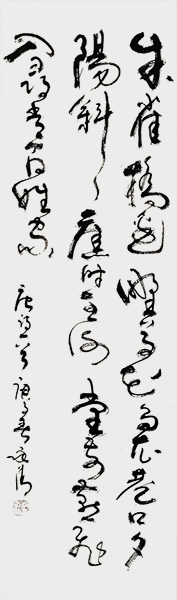 朱雀橋邊野草花烏衣巷口夕
陽斜舊時王謝堂前燕飛
入尋常百姓家
唐詩一首